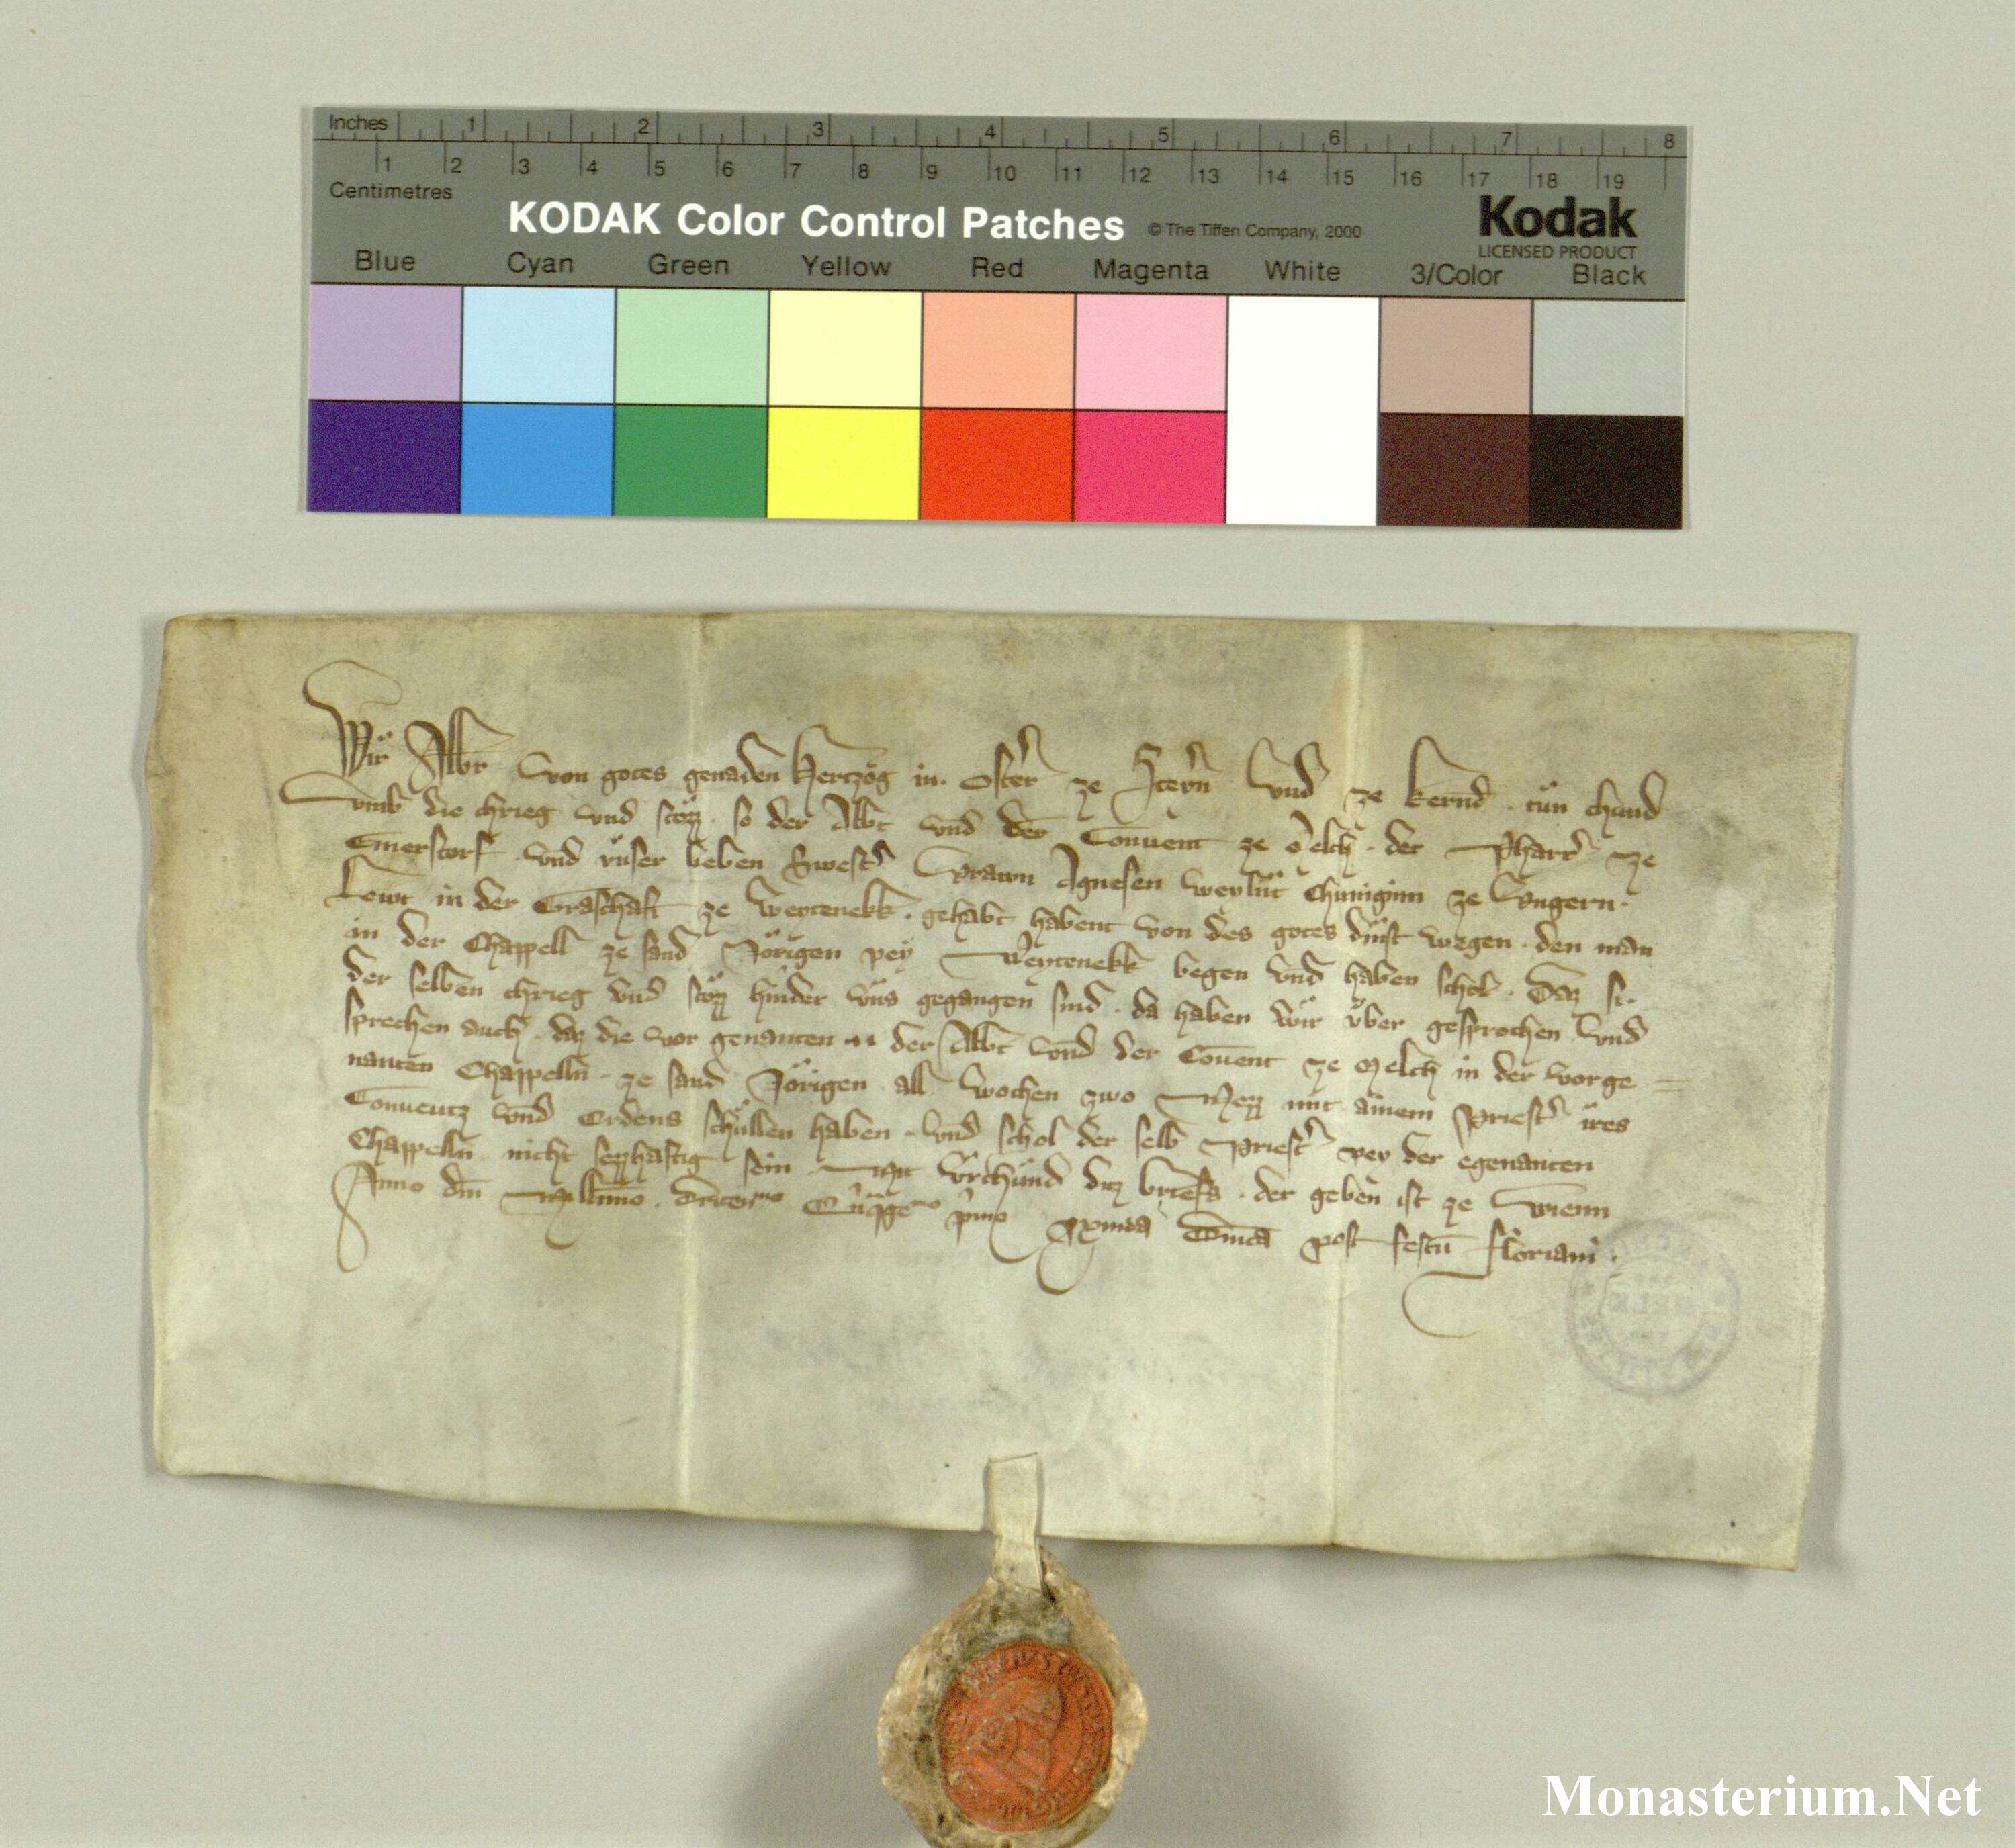 Inches 1 2 3 4 5 6 7 8
1 2 3 4 5 6 7 8 9 10 11 12 13 14 15 16 17 18 19
Centimetres
KODAK Color Control Patches © The Tiffen Company, 2000 Kodak
LICENSED PRODUCT
Blue Cyan Green Yellow Red Magenta White 3/Color Black
Wir Albr von gotes genaden Hertzog in Oster ze Steyrn vnd ze kernd . tun chund
vmb die chrieg vnd stozz . so der Abbt vnd der Conuent ze Melch . der Pharrer ze
Emerstorf . vnd vnser lieben Swester vrawn Agnesen weylnt Chuniginn ze vngern .
Lewt in der Grafschaft ze Weytenekk . gehabt habent von des gotes dinst wegen . den man
in der Chappell ze sand Jörigen pey Weytenekk begen vnd haben schol . Daz si .
der selben chrieg vnd stözz hinder vns gegangen sind . da haben wir vber gesprochen vnd
sprechen auch . daz die vor genanten .. der Abbt vnd der Couent ze Melch in der vorge
nanten Chappelln . ze sand Jörigen all wochen zwo Mezz mit ainem Priester ires
Conuentz vnd Ordens schullen haben . vnd schol der selb Priester pey der egenanten
Chappelln nicht sezzhaftig sein . Mit vrchund ditz briefs . der geben ist ze Wienn
Anno dm Millmo . Tricenmo Quqgemo pmo proxima Dmca post festu floriani .
Monasterium.Net